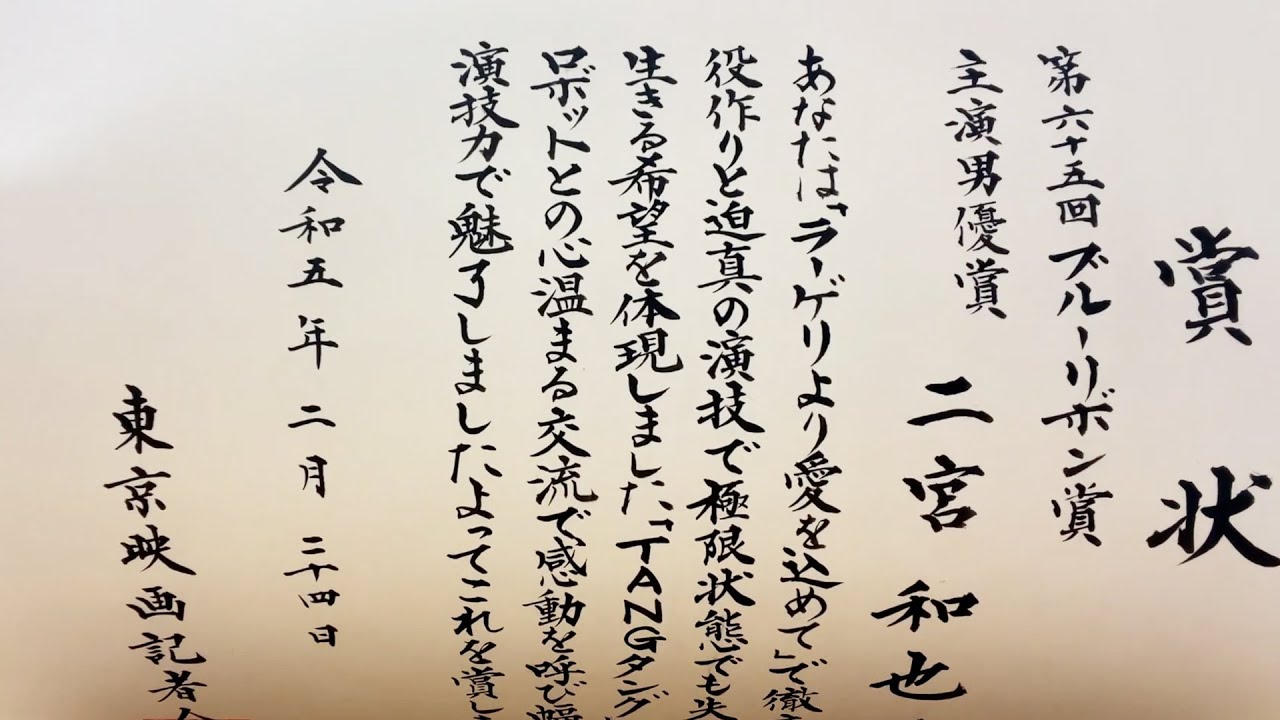 賞状
第六十五回ブルーリボン賞
主演男優賞
二宮和也
あなたは「ラーゲリより愛を込めて」で徹
役作りと迫真の演技で極限状態でも失
生きる希望を体現しました「TANGタング
ロボットとの心温まる交流で感動を呼び幅
演技力で魅了しましたよってこれを賞し
令和五年二月二十四日
東京映画記者会